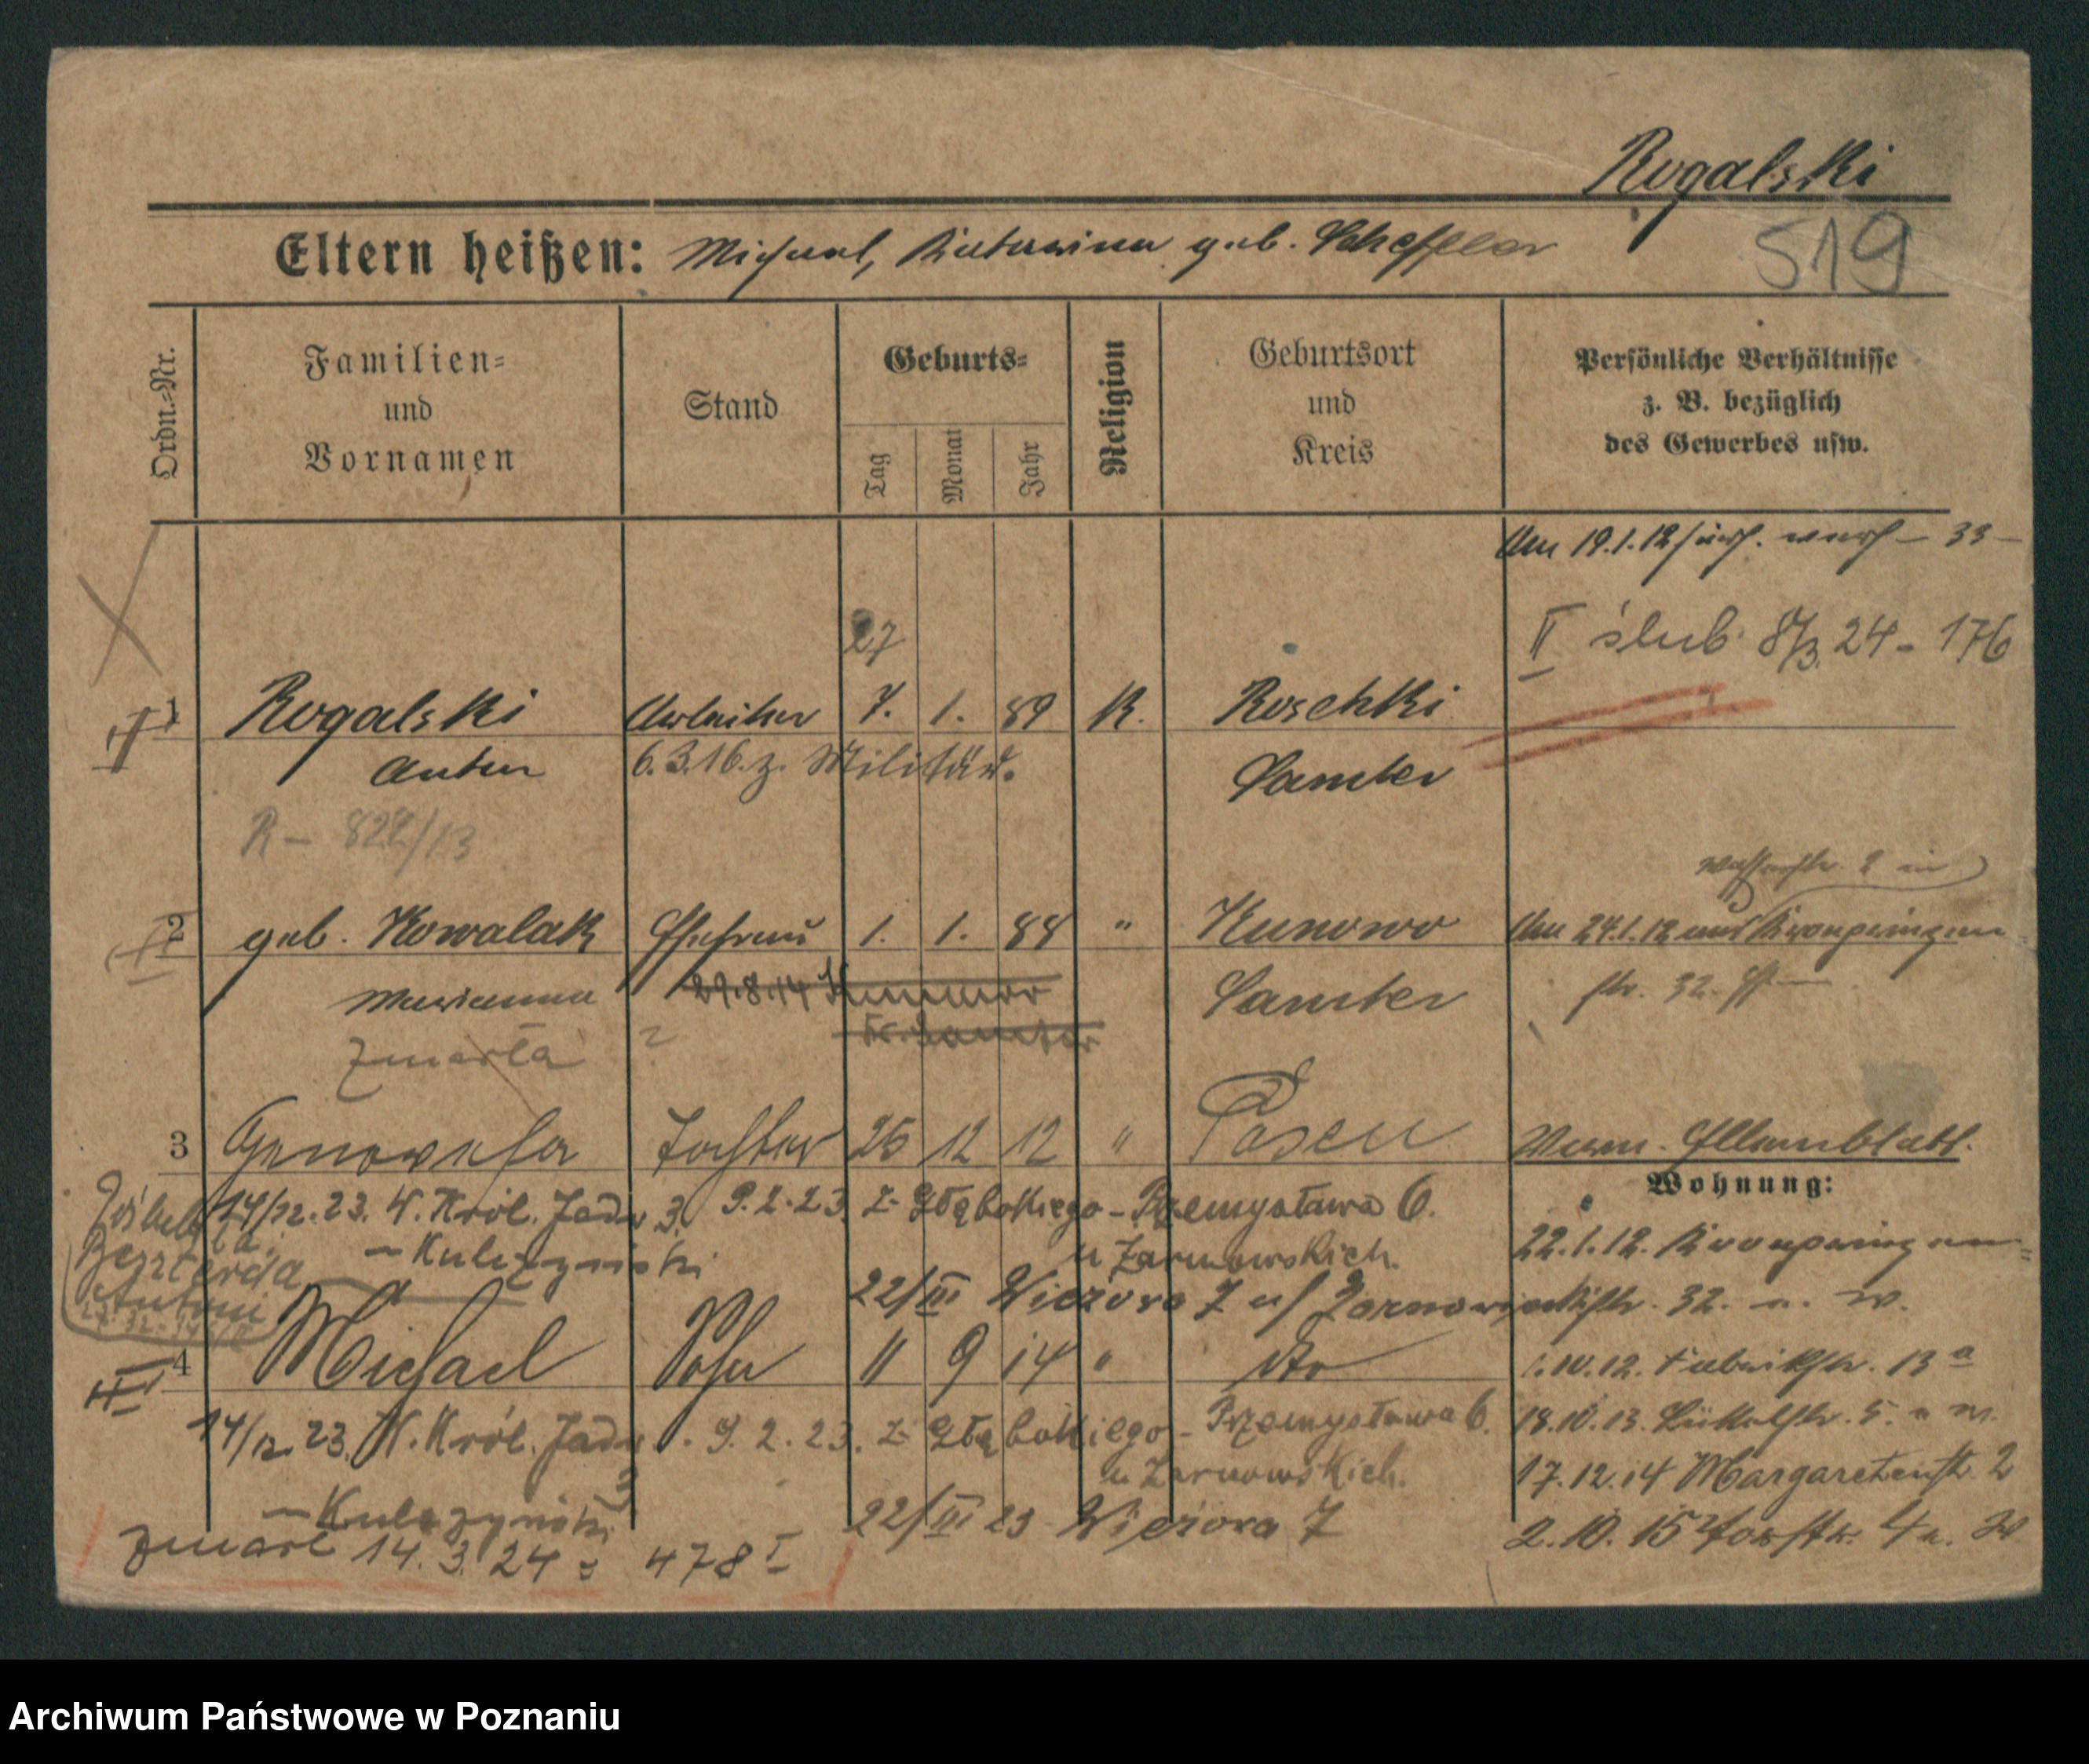 Rogalski
519
Eltern heißen: Michael, Katarina geb. Scheffler
Ordn.-Nr.
Familien-
und
Vornamen
Stand
Geburts-
Tag
Monat
Jahr
Religion
Geburtsort
und
Kreis
Persönliche Verhältnisse
z. B. bezüglich
des Gewerbes usw.
Am 19.1.12 – 33 –
II ślub 8/3.24 - 176
27
1 Rogalski Arbeiter 7. 1. 89 K. Roschki
Anton 6.3.16. z. Militär. Samter
R – 822/13
2 geb. Kowalak Ehefrau 1. 1. 88 " Kunowo Am 24.1.12 aus Kronprinzen
Marianna 29.8.14 Kunowo Samter str. 32.
zmarła Kr. Samter
3 Genowefa Tochter 25 12 12 " Posen
Wohnung:
14/12.23. W. Król. Jadw 3. 9.2.23. z Głębokiego - Przemysława 6.
– Kulczyński u Żarnowskich.
Antoni
22/III Wiezowa 7 u/
22.1.12. Kronprinzen-
str. 32. n. W.
4 Michael Sohn 11 9 14 " dto
1.10.12. Fabrikstr. 13 a
14/12.23. W. Król. Jadw. 9.2.23. z Głębokiego - Przemysława 6.
3 u Żarnowskich.
18.10.13. 5.
– Kulczyński 22/III 23 Wiezowa 7
17.12.14 Margaretenstr. 2
zmarł 14.3.24 = 478 I
2.10.15
Archiwum Państwowe w Poznaniu